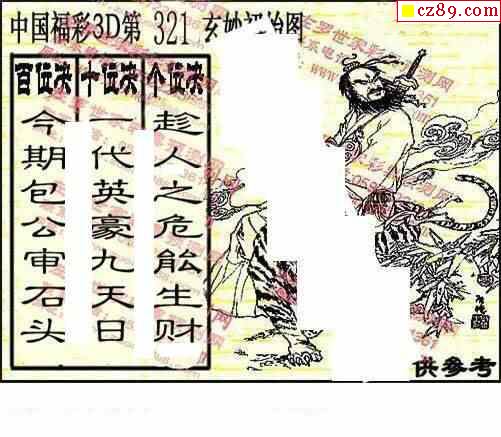 cz89.com
中国福彩3D第 321 玄妙 图
百位决 十位决 个位决
今期包公审石头
一代英豪九天日
趁人之危能生财
供参考